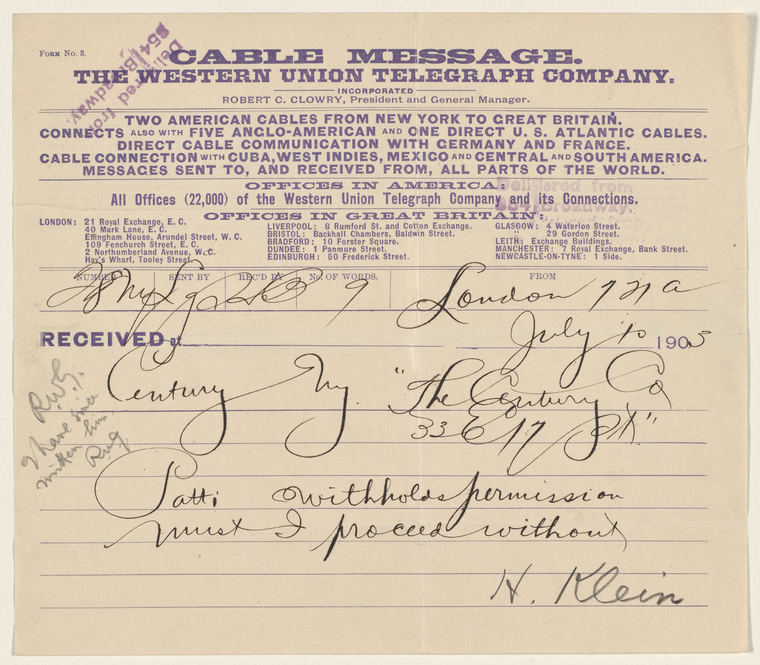 FORM No. 3.
Delivered from
854 Broadway.
CABLE MESSAGE.
THE WESTERN UNION TELEGRAPH COMPANY.
INCORPORATED
ROBERT C. CLOWRY, President and General Manager.
TWO AMERICAN CABLES FROM NEW YORK TO GREAT BRITAIN.
CONNECTS ALSO WITH FIVE ANGLO-AMERICAN AND ONE DIRECT U. S. ATLANTIC CABLES.
DIRECT CABLE COMMUNICATION WITH GERMANY AND FRANCE.
CABLE CONNECTION WITH CUBA, WEST INDIES, MEXICO AND CENTRAL AND SOUTH AMERICA.
MESSAGES SENT TO, AND RECEIVED FROM, ALL PARTS OF THE WORLD.
OFFICES IN AMERICA:
Delivered from
All Offices (22,000) of the Western Union Telegraph Company and its Connections.
854 Broadway.
OFFICES IN GREAT BRITAIN:
LONDON: 21 Royal Exchange, E. C.
40 Mark Lane, E. C.
Effingham House, Arundel Street, W. C.
109 Fenchurch Street, E. C.
2 Northumberland Avenue, W. C.
Hay's Wharf, Tooley Street.
LIVERPOOL: 8 Rumford St. and Cotton Exchange.
BRISTOL: Backhall Chambers, Baldwin Street.
BRADFORD: 10 Forster Square.
DUNDEE: 1 Panmure Street.
EDINBURGH: 50 Frederick Street.
GLASGOW: 4 Waterloo Street.
" 29 Gordon Street.
LEITH: Exchange Buildings.
MANCHESTER: 7 Royal Exchange, Bank Street.
NEWCASTLE-ON-TYNE: 1 Side.
NUMBER SENT BY REC'D BY No. OF WORDS. FROM
9 London
RECEIVED at July 10 1903
Century Ny. "The Century Co
33 E 17 St"
R.W.G.
I have since
written him.
RWG
Patti withholds permission
must I proceed without
H. Klein